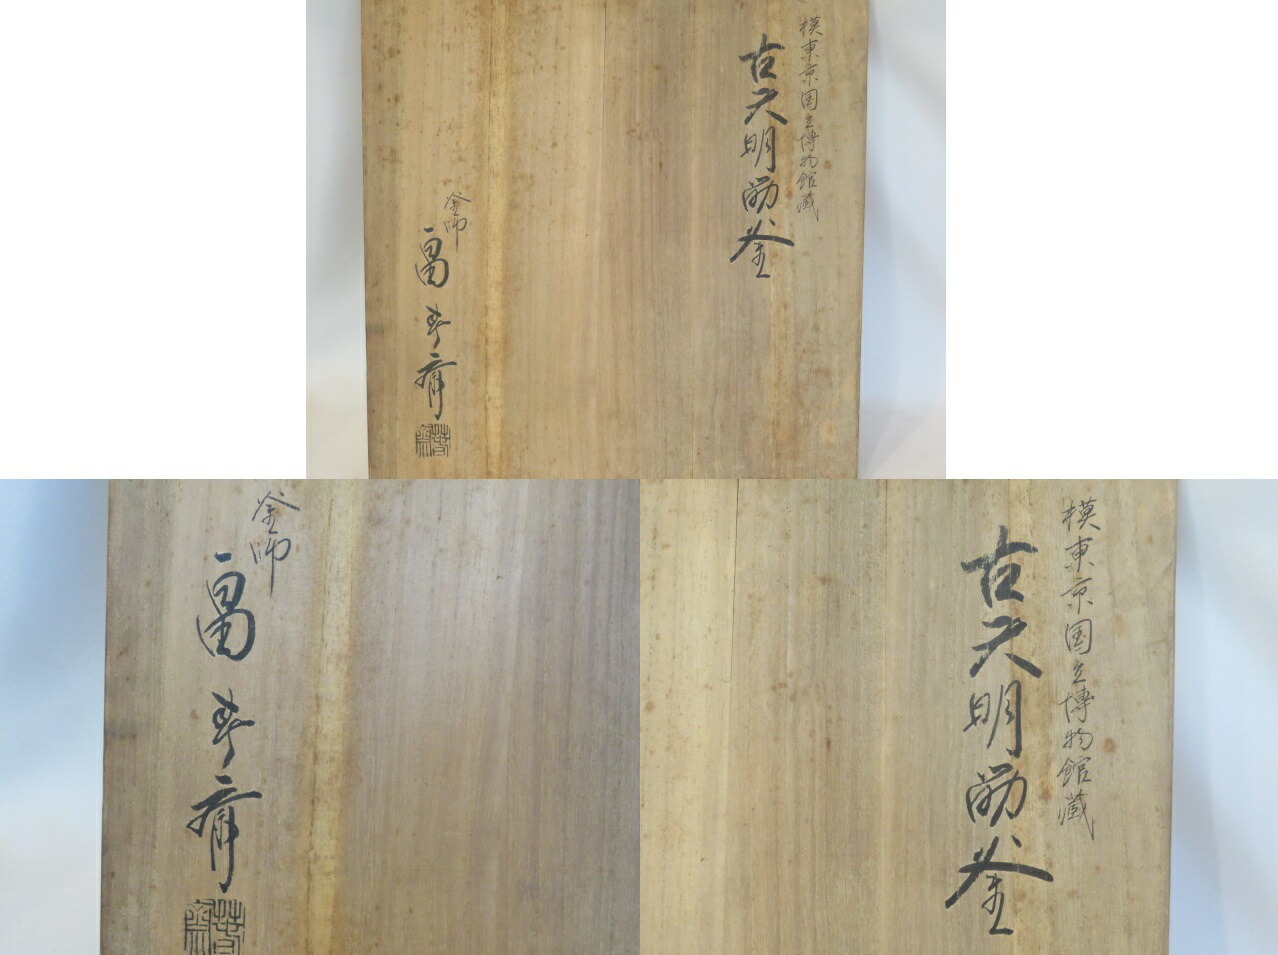 模東京国立博物館蔵
古天明筋釜
釜師
畠春斎
釜師
畠春斎
模東京国立博物館蔵
古天明筋釜